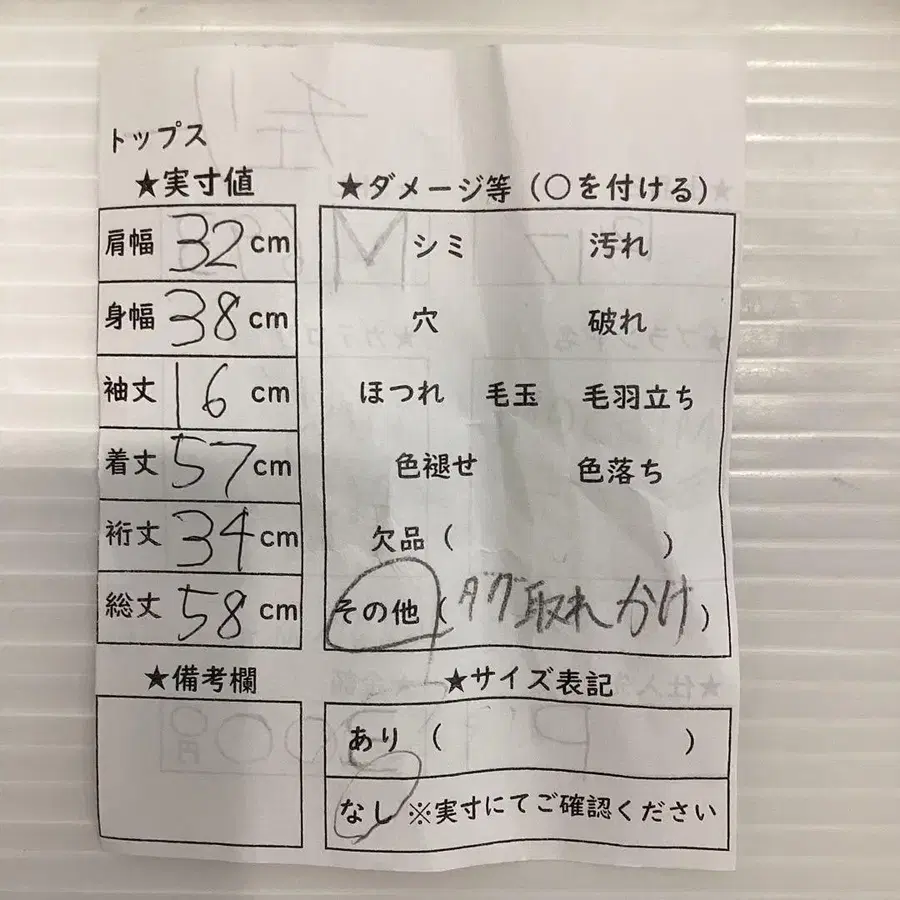 トップス
★実寸値
肩幅 32 cm
身幅 38 cm
袖丈 16 cm
着丈 57 cm
裄丈 34 cm
総丈 58 cm
★備考欄
★ダメージ等（○を付ける）
シミ 汚れ
穴 破れ
ほつれ 毛玉 毛羽立ち
色褪せ 色落ち
欠品（ ）
その他（タグ取れかけ）
★サイズ表記
あり（ ）
なし ※実寸にてご確認ください